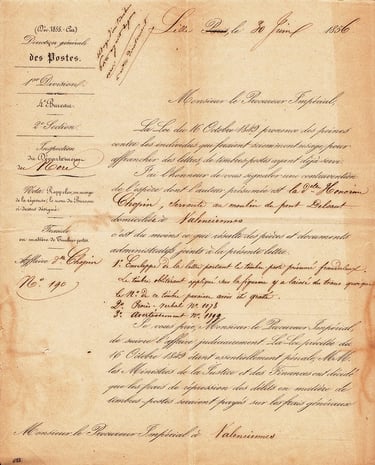 (Déc. 1855. Cas.)
Direction générale
des Postes.
1ère Division
4e Bureau.
2e Section.
Inspection
du Département
du Nord
Nota: Rappeler en marge
de la réponse, le nom du Bureau
ci-dessus désigné.
Formule
en matière de timbres-postes.
Affaire Dlle Chopin
No 190
Lille le 30 Juin 1856
Monsieur le Procureur Impérial,
La Loi du 16 Octobre 1849 prononce des peines
contre les individus qui feraient sciemment usage pour
affranchir des lettres, de timbres-postes ayant déjà servi.
J'ai l'honneur de vous signaler une contravention
de l'espèce dont l'auteur présumé est la Dlle Honorine
Chopin, servante au moulin du pont Delsaut
domiciliée à Valenciennes
c'est du moins ce que révèlent les pièces et documents
administratifs joints à la présente lettre.
1° Enveloppe de la lettre portant le timbre poste présumé frauduleux.
Le timbre oblitérant appliqué sur la figurine y a laissé des traces quoique
le No de ce timbre paraisse avoir été gratté.
2° Procès-verbal No 1078
3° Avertissement No 1199
Je vous prie, Monsieur le Procureur Impérial,
de suivre l'affaire judiciairement. La Loi précitée du
16 Octobre 1849 étant essentiellement pénale, M.M.
les Ministres de la Justice et des Finances ont décidé
que les frais de répression des délits en matière de
timbres-postes seraient payés sur les frais généraux
Monsieur le Procureur Impérial à Valenciennes